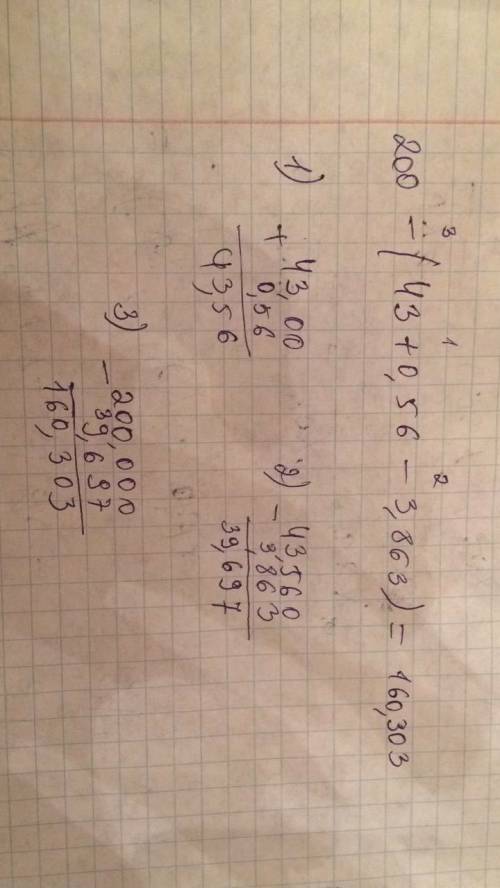 200 - (43 + 0,56 - 3,863) = 160,303
3 1 2
1)
+ 43,00
0,56
43,56
2)
- 43,560
3,863
39,697
3)
- 200,000
39,697
160,303